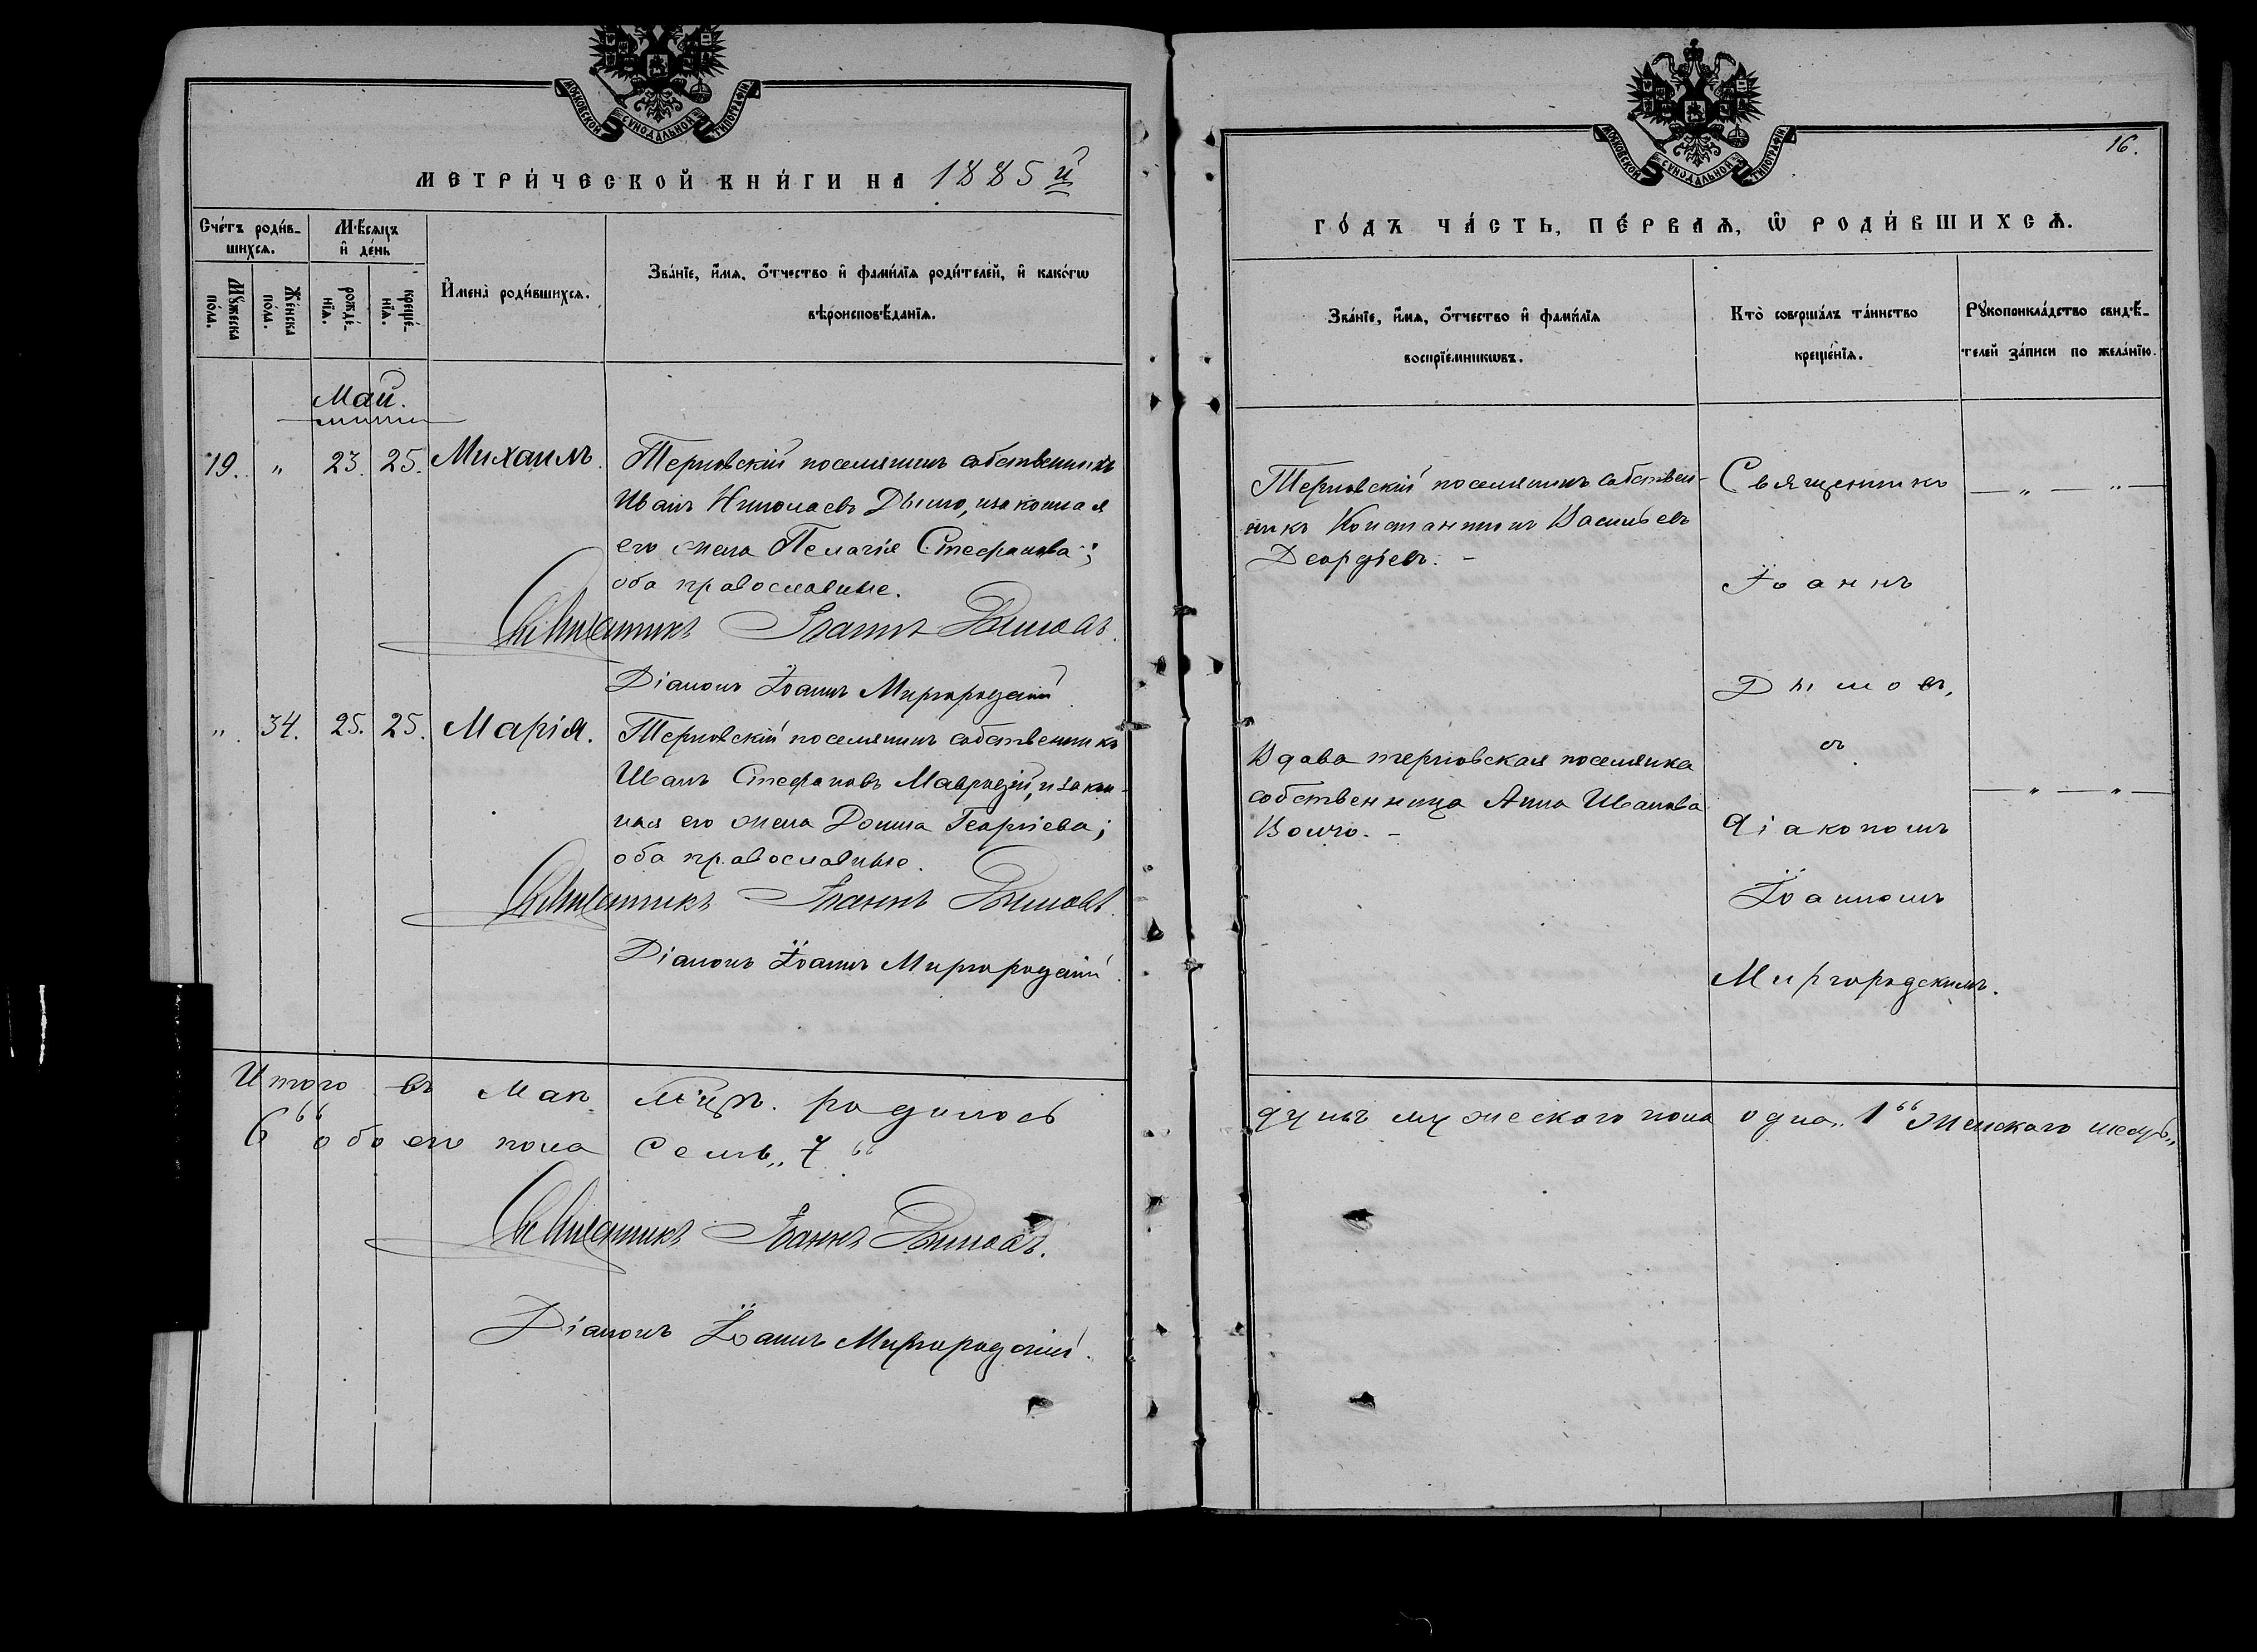 МОСКОВСКОЙ СУНОДАЛЬНОЙ ТИПОГРАФІИ
МЕТРИ́ЧЕСКОЙ КНИ́ГИ НА 1885й
Сче́тъ роди́в-
шихсѧ.
Мѹ́жеска
по́ла.
Же́нска
по́ла.
Мѣ́сѧцъ
и҆ де́нь
рожде́-
нїѧ.
креще́-
нїѧ.
И҆мена̀ роди́вшихсѧ.
Зва́нїе, и҆́мѧ, ѻ҆́тчество и҆ фами́лїѧ роди́телей, и҆ како́гѡ
вѣроисповѣ́данїѧ.
Май.
19. „ 23. 25. Михаилъ.
Терновскій поселянинъ собственникъ
Иванъ Николаевъ Дымо, и законная
его жена Пелагія Стефанова;
оба православные.
Священникъ Іоаннъ Дымовъ.
Діаконъ Іоаннъ Миргородскій.
„ 34. 25. 25. Марія.
Терновскій поселянинъ собственникъ
Иванъ Стефановъ Мавродій, и закон-
ная его жена Домна Георгіева;
оба православные.
Священникъ Іоаннъ Дымовъ.
Діаконъ Іоаннъ Миргородскій.
Итого въ Маѣ м-цѣ родилось
6“ обоего пола семь „7“
Священникъ Іоаннъ Дымовъ.
Діаконъ Іоаннъ Миргородскій.
МОСКОВСКОЙ СУНОДАЛЬНОЙ ТИПОГРАФІИ
16.
ГО́ДЪ ЧА́СТЬ, ПЕ́РВАѦ, Ѡ҆ РОДИ́ВШИХСѦ.
Зва́нїе, и҆́мѧ, ѻ҆́тчество и҆ фами́лїѧ
воспрїе́мникѡвъ.
Кто̀ соверша́лъ та́инство
креще́нїѧ.
Рѹкоприкла́дство свидѣ́-
телей за́писи по жела́нїю.
Терновскій поселянинъ собствен-
никъ Константинъ Васильевъ
Деордіевъ. -
Вдова терновская поселянка
собственница Анна Иванова
Волчо. -
Священникъ
Іоаннъ
Дымовъ,
съ
діакономъ
Іоанномъ
Миргородскимъ.
— „ — „ —
— „ — „ —
душъ мужескаго пола одна „1“ женскаго шесть „